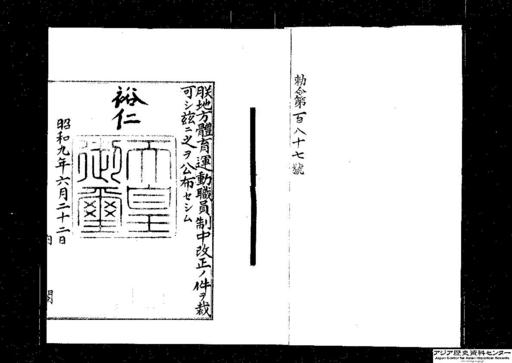 勅令第百八十七號
朕地方體育運動職員制中改正ノ件ヲ裁
可シ茲ニ之ヲ公布セシム
裕仁
天皇御璽
昭和九年六月二十二日
アジア歴史資料センター
Japan Center for Asian Historical Records